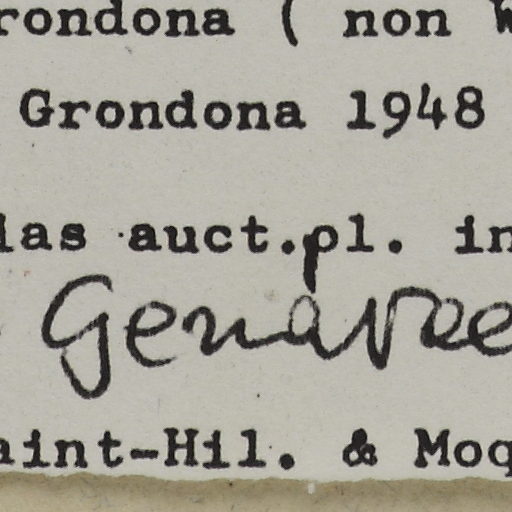 rondona ( non W
Grondona 1948
las auct.pl. in
aint-Hil. & Moq